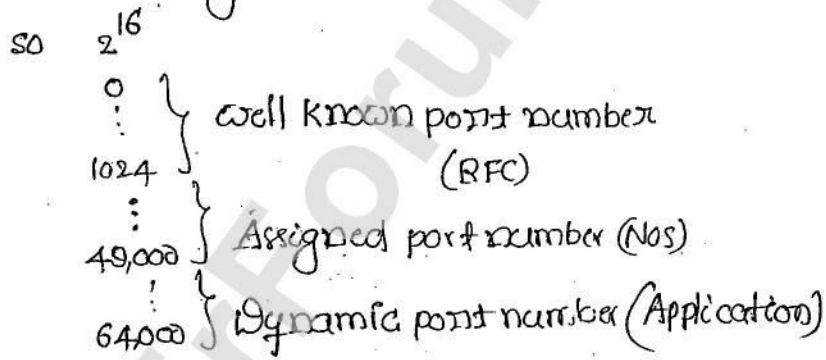 so 2^16
0
⋮ } well known port number
1024 (RFC)
⋮ } Assigned port number (Nos)
49,000
⋮ } Dynamic port number (Application)
64,000